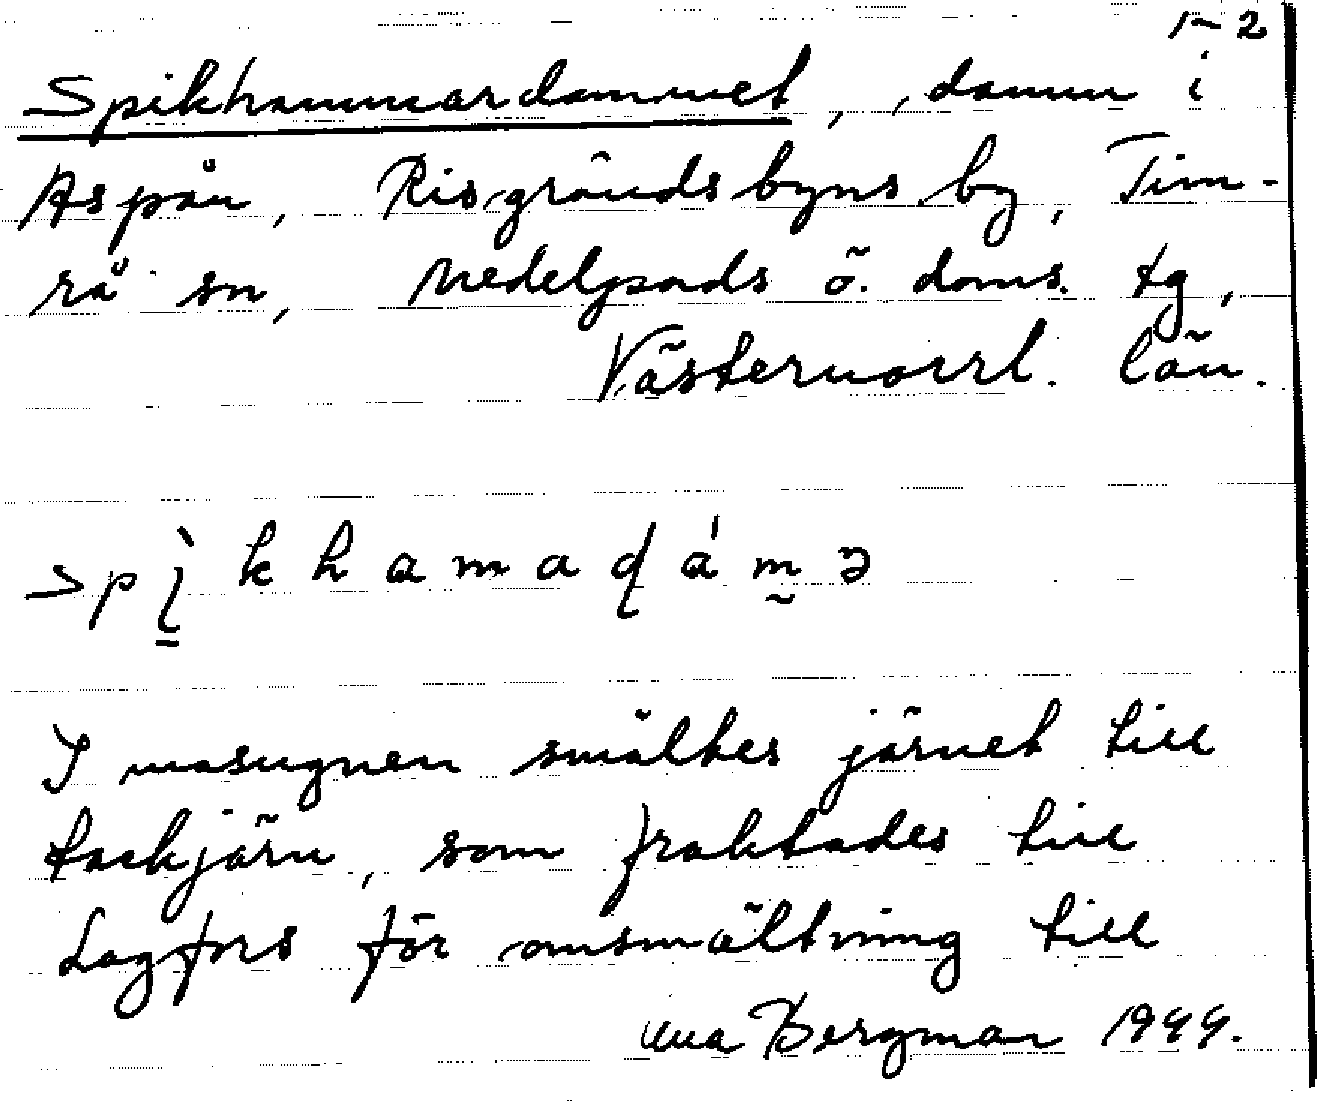 1-2
Spikhammardammet, , damm i
Aspån, Risgrändsbyns by, Tim-
rå sn, Medelpads ö. doms. tg,
Västernorrl. län.
Spì̠khamaɖám̰ə
I masugnen smältes järnet till
tackjärn, som fraktades till
Lagfors för omsmältning till
Una Bergman 1944.